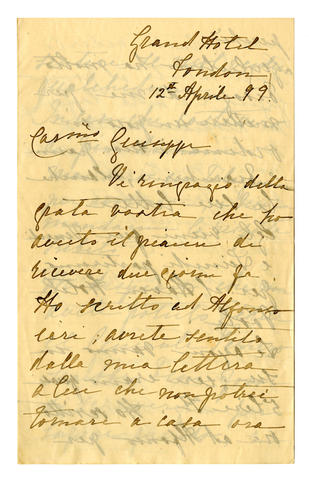 Grand Hotel
London
12th Aprile 99.
Carmo Giuseppe
Vi ringrazio della
grata vostra che ho
avuto il piacere di
ricevere due giorni fa.
Ho scritto ad Alfonso
ieri, avrete sentito
dalla mia lettera
a lui che non potrei
tornare a casa ora